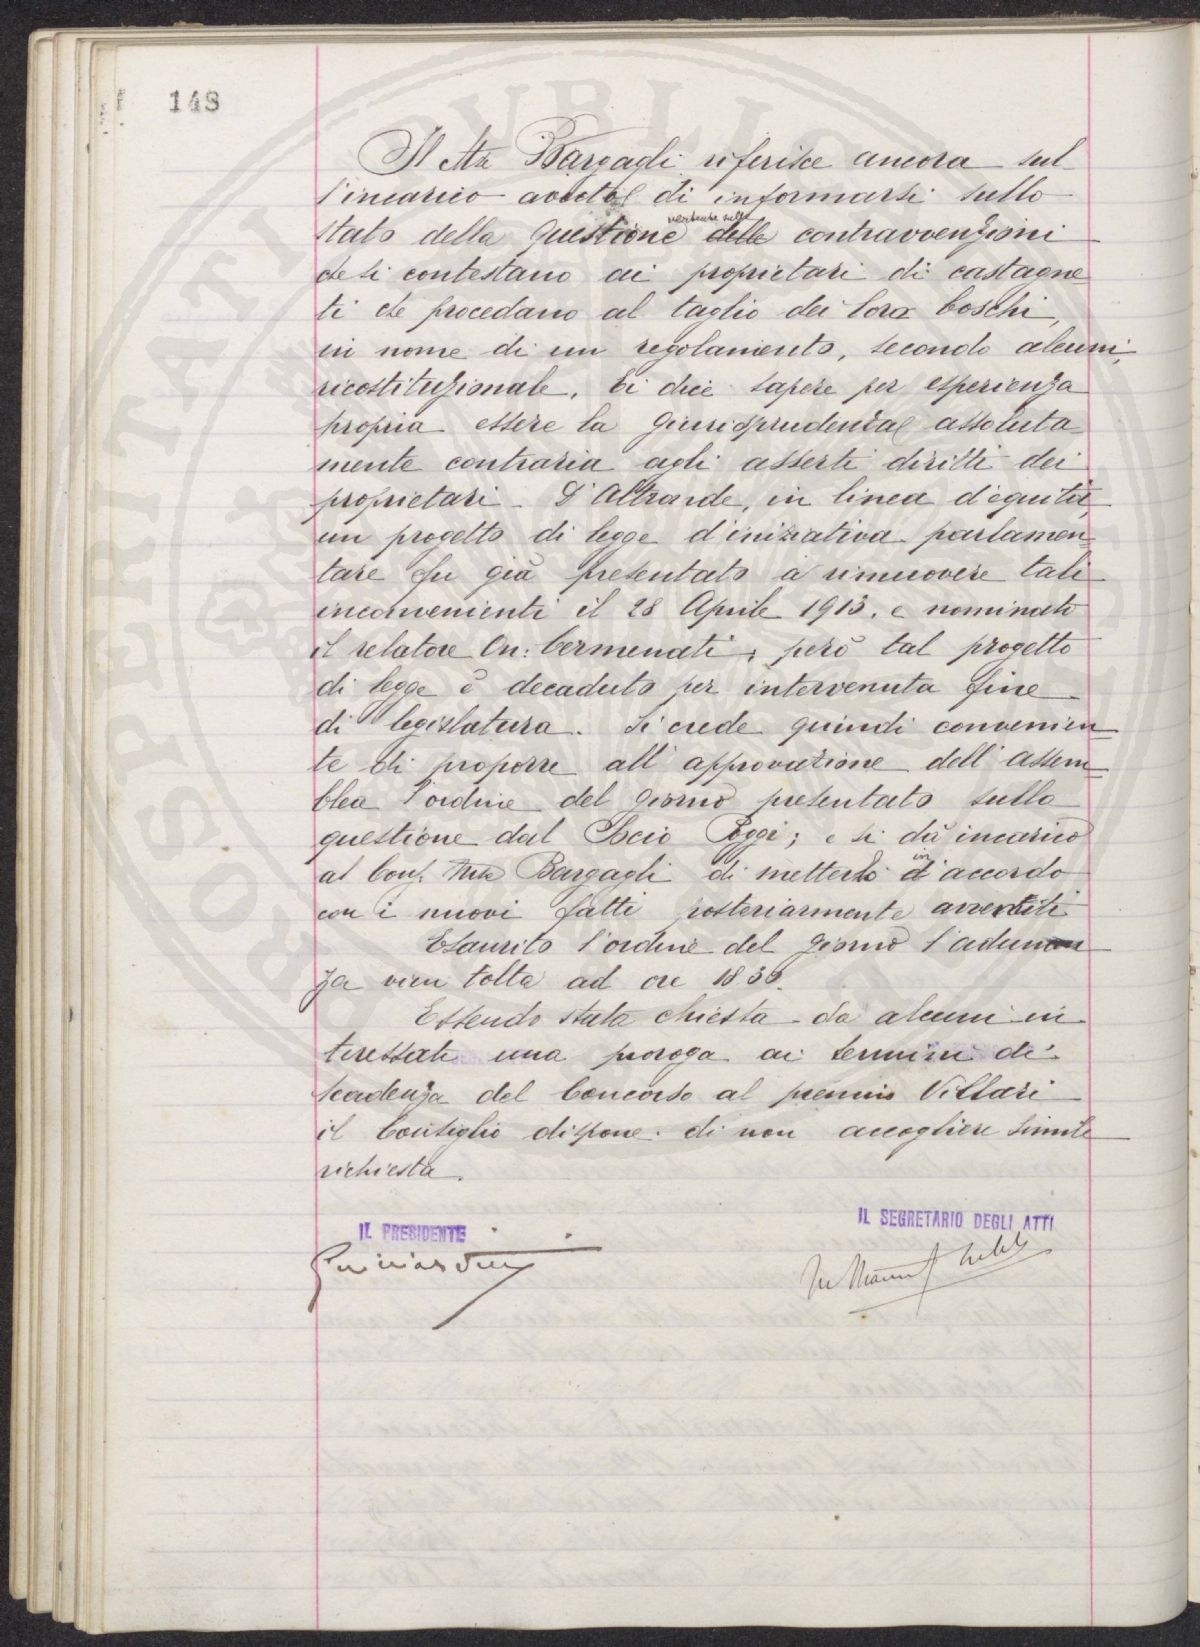 148
Il Mse Bargagli riferisce ancora sul
l'incarico avuto di informarsi sullo
stato della questione vertente sulle delle contravvenzioni
che si contestano ai proprietari di castagne
ti che procedano al taglio dei loro boschi,
in nome di un regolamento, secondo alcuni,
incostituzionale. Ei dice sapere per esperienza
propria essere la giurisprudenza assoluta-
mente contraria agli asserti diritti dei
proprietari. D'altronde, in linea d'equità,
un progetto di legge d'iniziativa parlamen=
tare fu già presentato a rimuovere tali
inconvenienti il 28 Aprile 1913, e nominato
il relatore On: Cermenati; però tal progetto
di legge è decaduto per intervenuta fine
di legislatura. Si crede quindi convenien=
te di proporre all'approvazione dell'assem=
blea l'ordine del giorno presentato sulla
questione dal Socio Poggi; e si dà incarico
al Cons. Mse Bargagli di metterlo in d'accordo
con i nuovi fatti posteriormente avvertiti
Esaurito l'ordine del giorno l'adunan
za vien tolta ad ore 18 30.
Essendo stata chiesta da alcuni in
teressati una proroga ai termini di
scadenza del Concorso al premio Villari
il Consiglio dispone di non accogliere simile
richiesta.
IL PRESIDENTE
IL SEGRETARIO DEGLI ATTI
Guicciardini